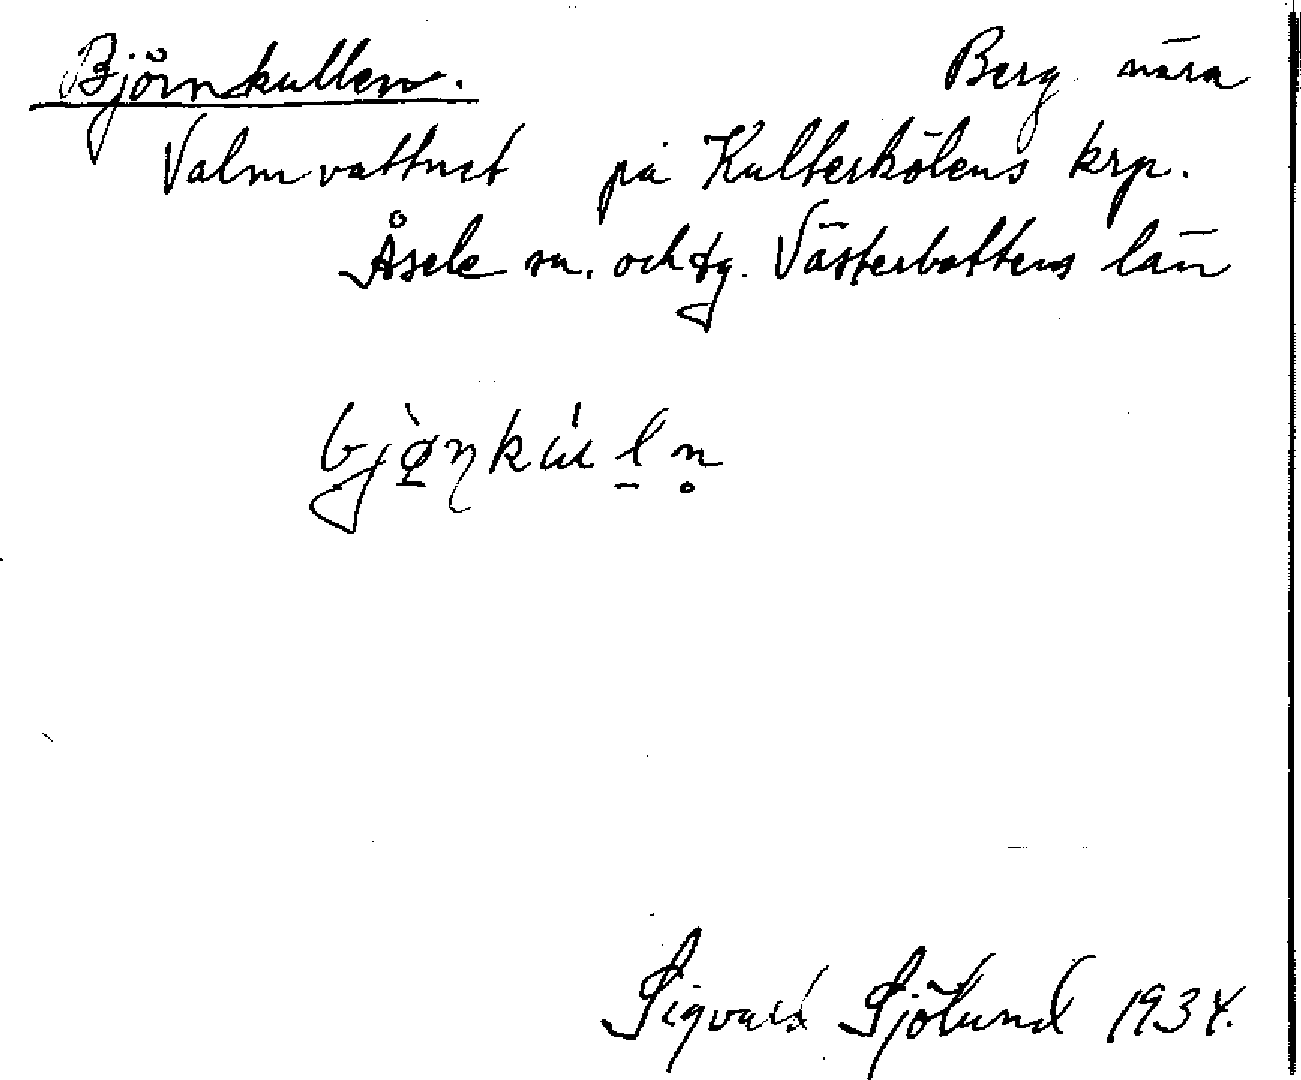 Björnkullen. Berg nära
Valmvattnet på Kulterkölens krp.
Åsele sn. och tg. Västerbottens län
bjø̀ṇkùl̠n̥
Sigvald Sjölund 1934.